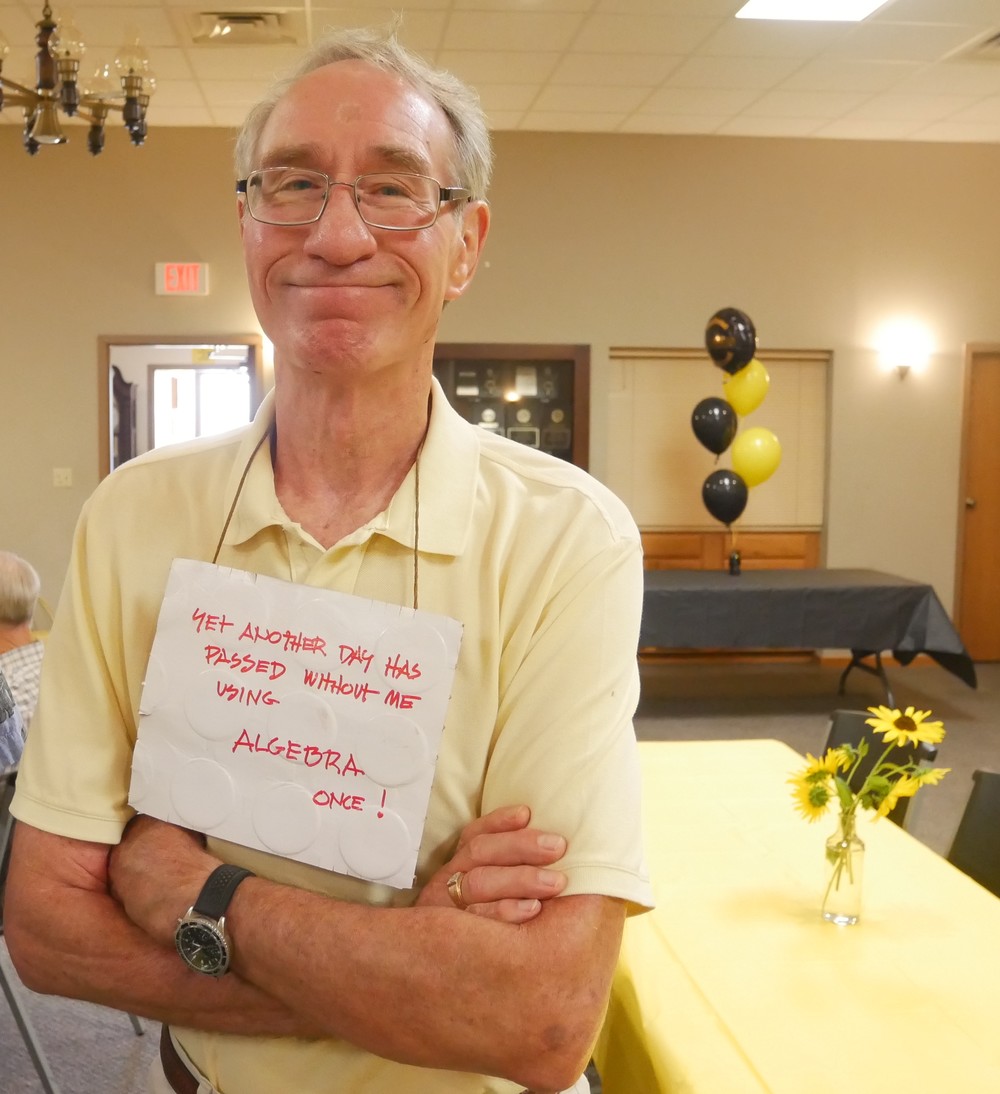 EXIT
YET ANOTHER DAY HAS
PASSED WITHOUT ME
USING
ALGEBRA
ONCE!